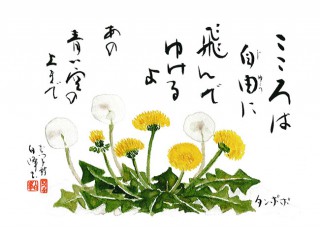 こころは
自由に
じゆう
飛んで
ゆける
よ
あの
青い空の
上まで
タンポポ